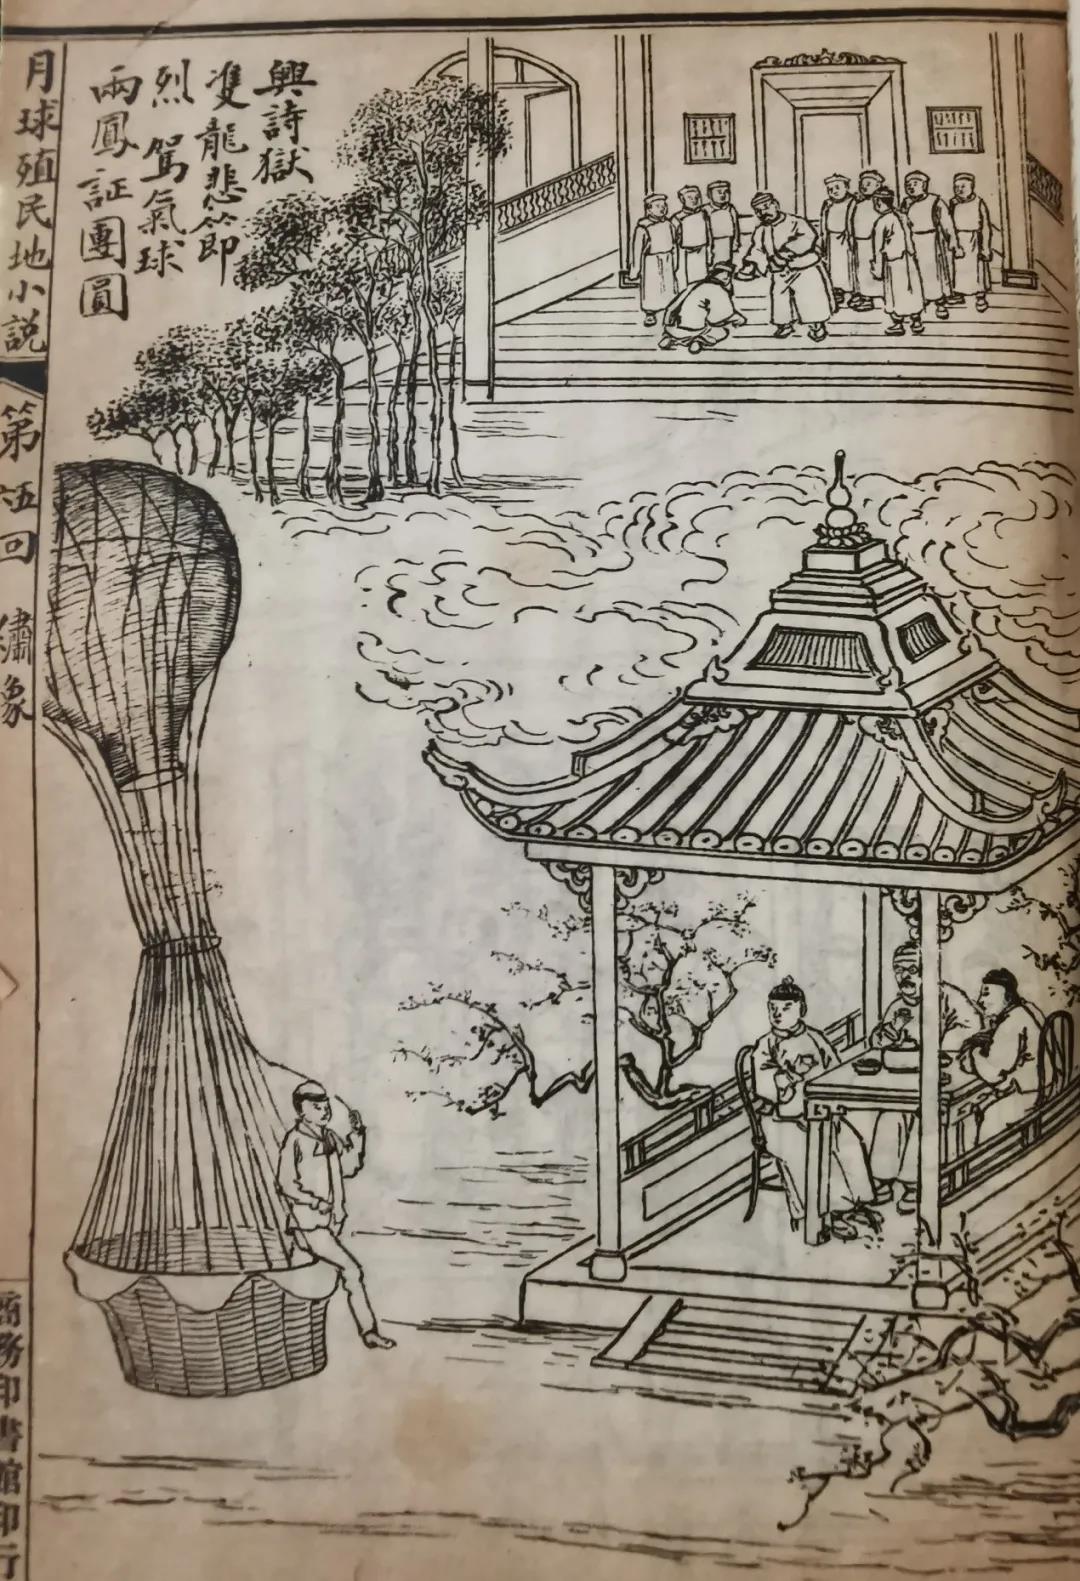 興詩獄
雙龍悲節
烈 駕氣球
兩鳳証團圓
月球殖民地小説
第伍回 繡象
商務印書館印行